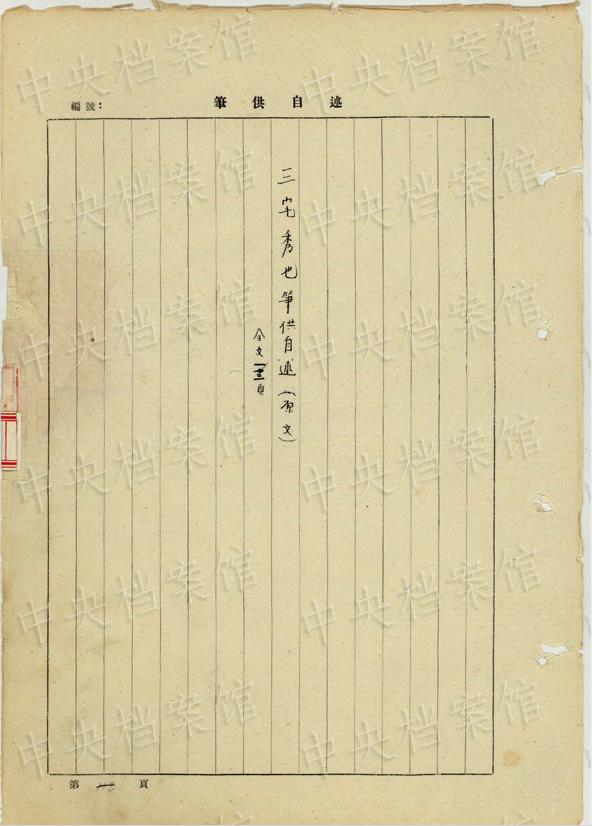 編號：
筆供自述
三宅秀也筆供自述（原文）
全文 頁
第一頁
中央档案馆
中央档案馆
中央档案馆
中央档案馆
中央档案馆
中央档案馆
中央档案馆
中央档案馆
中央档案馆
中央档案馆
中央档案馆
中央档案馆